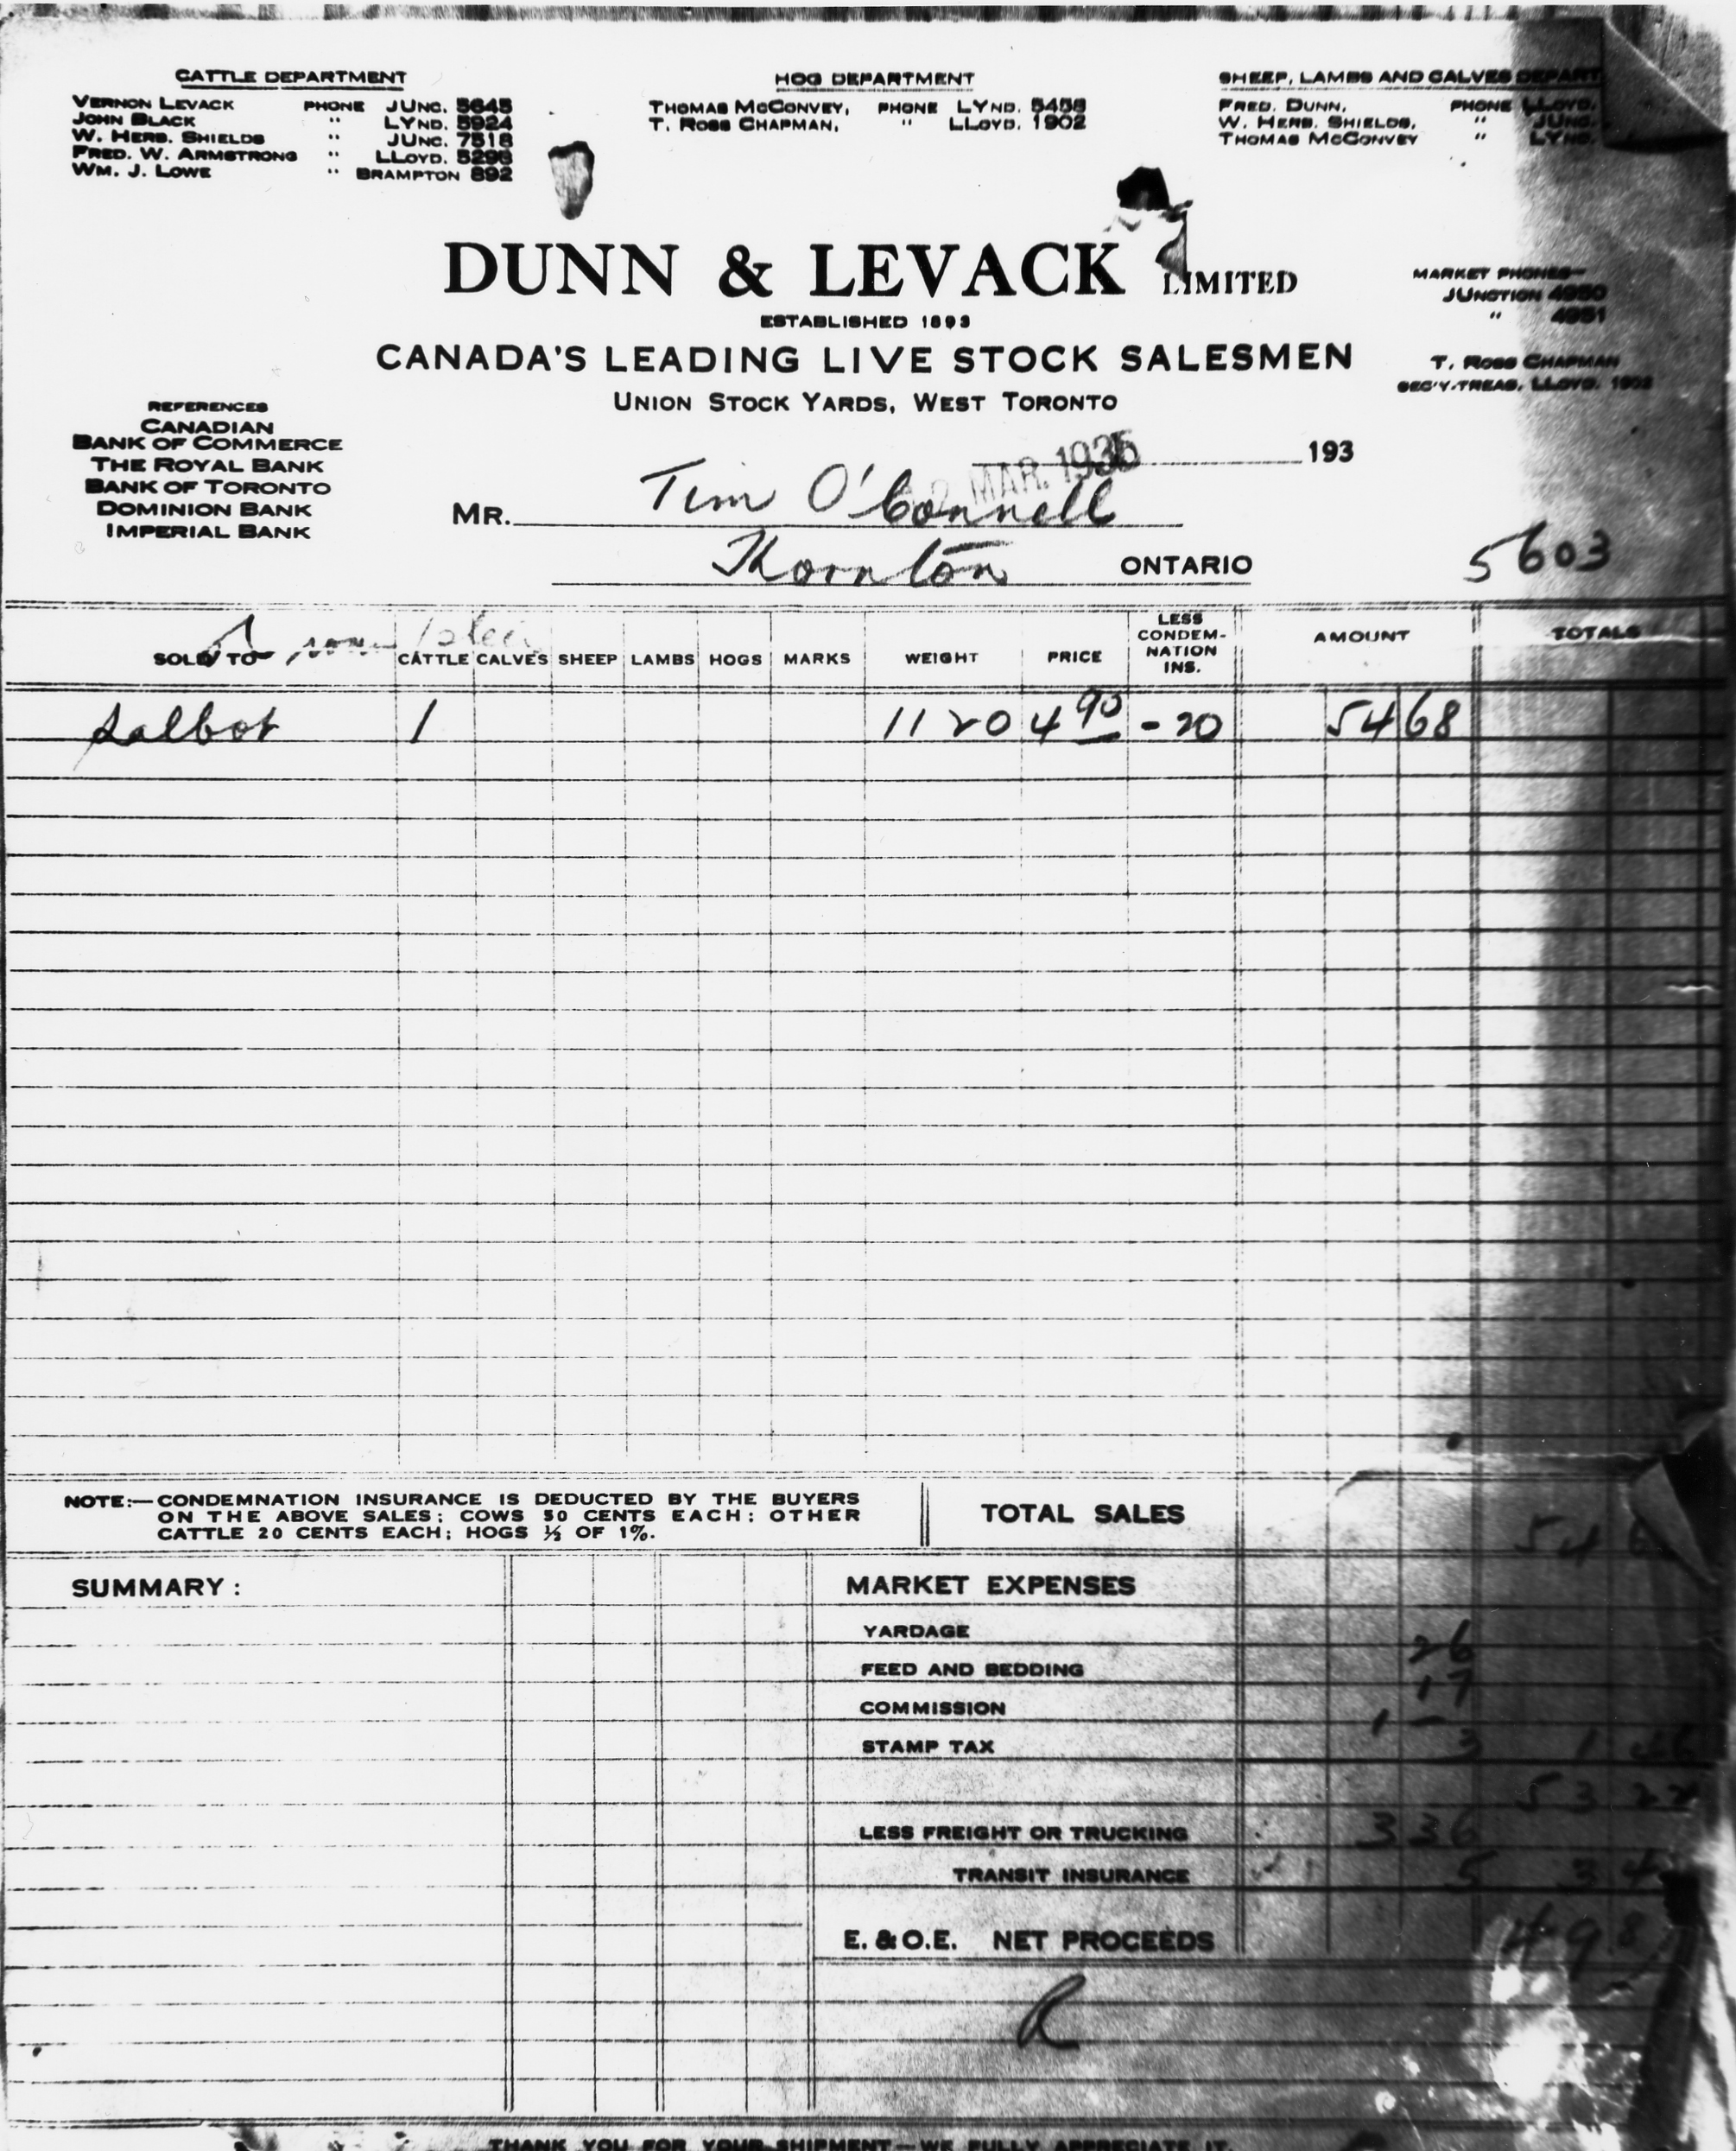 CATTLE DEPARTMENT
VERNON LEVACK PHONE JUNC. 5645
JOHN BLACK " LYND. 5924
W. HERB. SHIELDS " JUNC. 7518
FRED. W. ARMSTRONG " LLOYD. 5298
WM. J. LOWE " BRAMPTON 892
HOG DEPARTMENT
THOMAS MCCONVEY, PHONE LYND. 5458
T. ROSS CHAPMAN, " LLOYD. 1902
SHEEP, LAMBS AND CALVES DEPART
FRED. DUNN, PHONE LLOYD.
W. HERB. SHIELDS, " JUNC.
THOMAS MCCONVEY " LYND.
DUNN & LEVACK LIMITED
ESTABLISHED 1893
CANADA'S LEADING LIVE STOCK SALESMEN
UNION STOCK YARDS, WEST TORONTO
MARKET PHONES—
JUNCTION 4950
" 4951
T. ROSS CHAPMAN
SEC'Y-TREAS. LLOYD. 1902
REFERENCES
CANADIAN
BANK OF COMMERCE
THE ROYAL BANK
BANK OF TORONTO
DOMINION BANK
IMPERIAL BANK
MAR. 1935 193
MR. Tim O'Connell
Thornton ONTARIO 5603
SOLD TO CATTLE CALVES SHEEP LAMBS HOGS MARKS WEIGHT PRICE LESS CONDEM-NATION INS. AMOUNT TOTALS
Talbot 1 1120 4 90 - 20 54 68
NOTE:—CONDEMNATION INSURANCE IS DEDUCTED BY THE BUYERS
ON THE ABOVE SALES; COWS 50 CENTS EACH; OTHER
CATTLE 20 CENTS EACH; HOGS ½ OF 1%.
TOTAL SALES 54
SUMMARY:
MARKET EXPENSES
YARDAGE 26
FEED AND BEDDING 17
COMMISSION 1 –
STAMP TAX 3 1 46
53 22
LESS FREIGHT OR TRUCKING 3 36
TRANSIT INSURANCE 5 3 4
E. & O.E. NET PROCEEDS 49 8
R
THANK YOU FOR YOUR SHIPMENT—WE FULLY APPRECIATE IT.